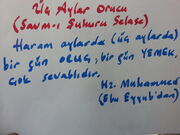 Üç Aylar Orucu
(Savm-ı Şuhuru Selase)
Haram aylarda (üç aylarda)
bir gün ORUÇ, bir gün YEMEK,
çok sevabtıdır.
Hz. Muhammed
(Ebu Eyyub'dan)